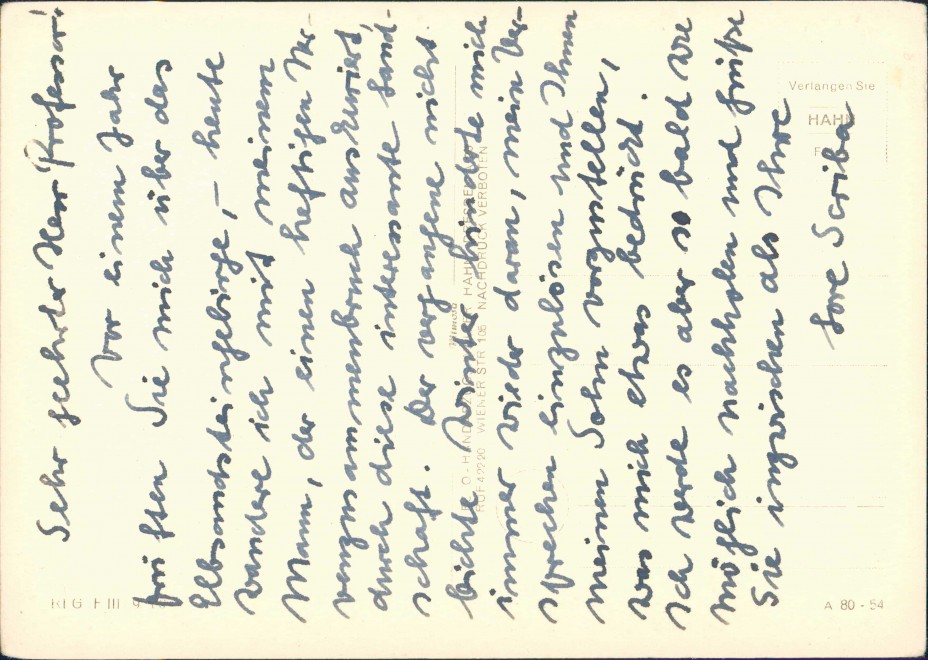 Sehr geehrter Herr Professor!
Vor einem Jahr
prüften Sie mich über das
Elbsandsteingebirge, – heute
wandere ich mit meinem
Mann, der einen heftigen Ner-
venzusammenbruch auskuriert,
durch diese interessante Land-
schaft. Der vergangene nicht
leichte Winter hinderte mich
immer wieder daran, mein Ver-
sprechen einzulösen und Ihnen
meinen Sohn vorzustellen,
was mich etwas bedrückt.
Ich werde es aber so bald wie
möglich nachholen und grüße
Sie inzwischen als Ihre
Lore Scriba
Verlangen Sie
HAHN
RUF 42220 WIENER STR. 105 NACHDRUCK VERBOTEN
A 80 - 54